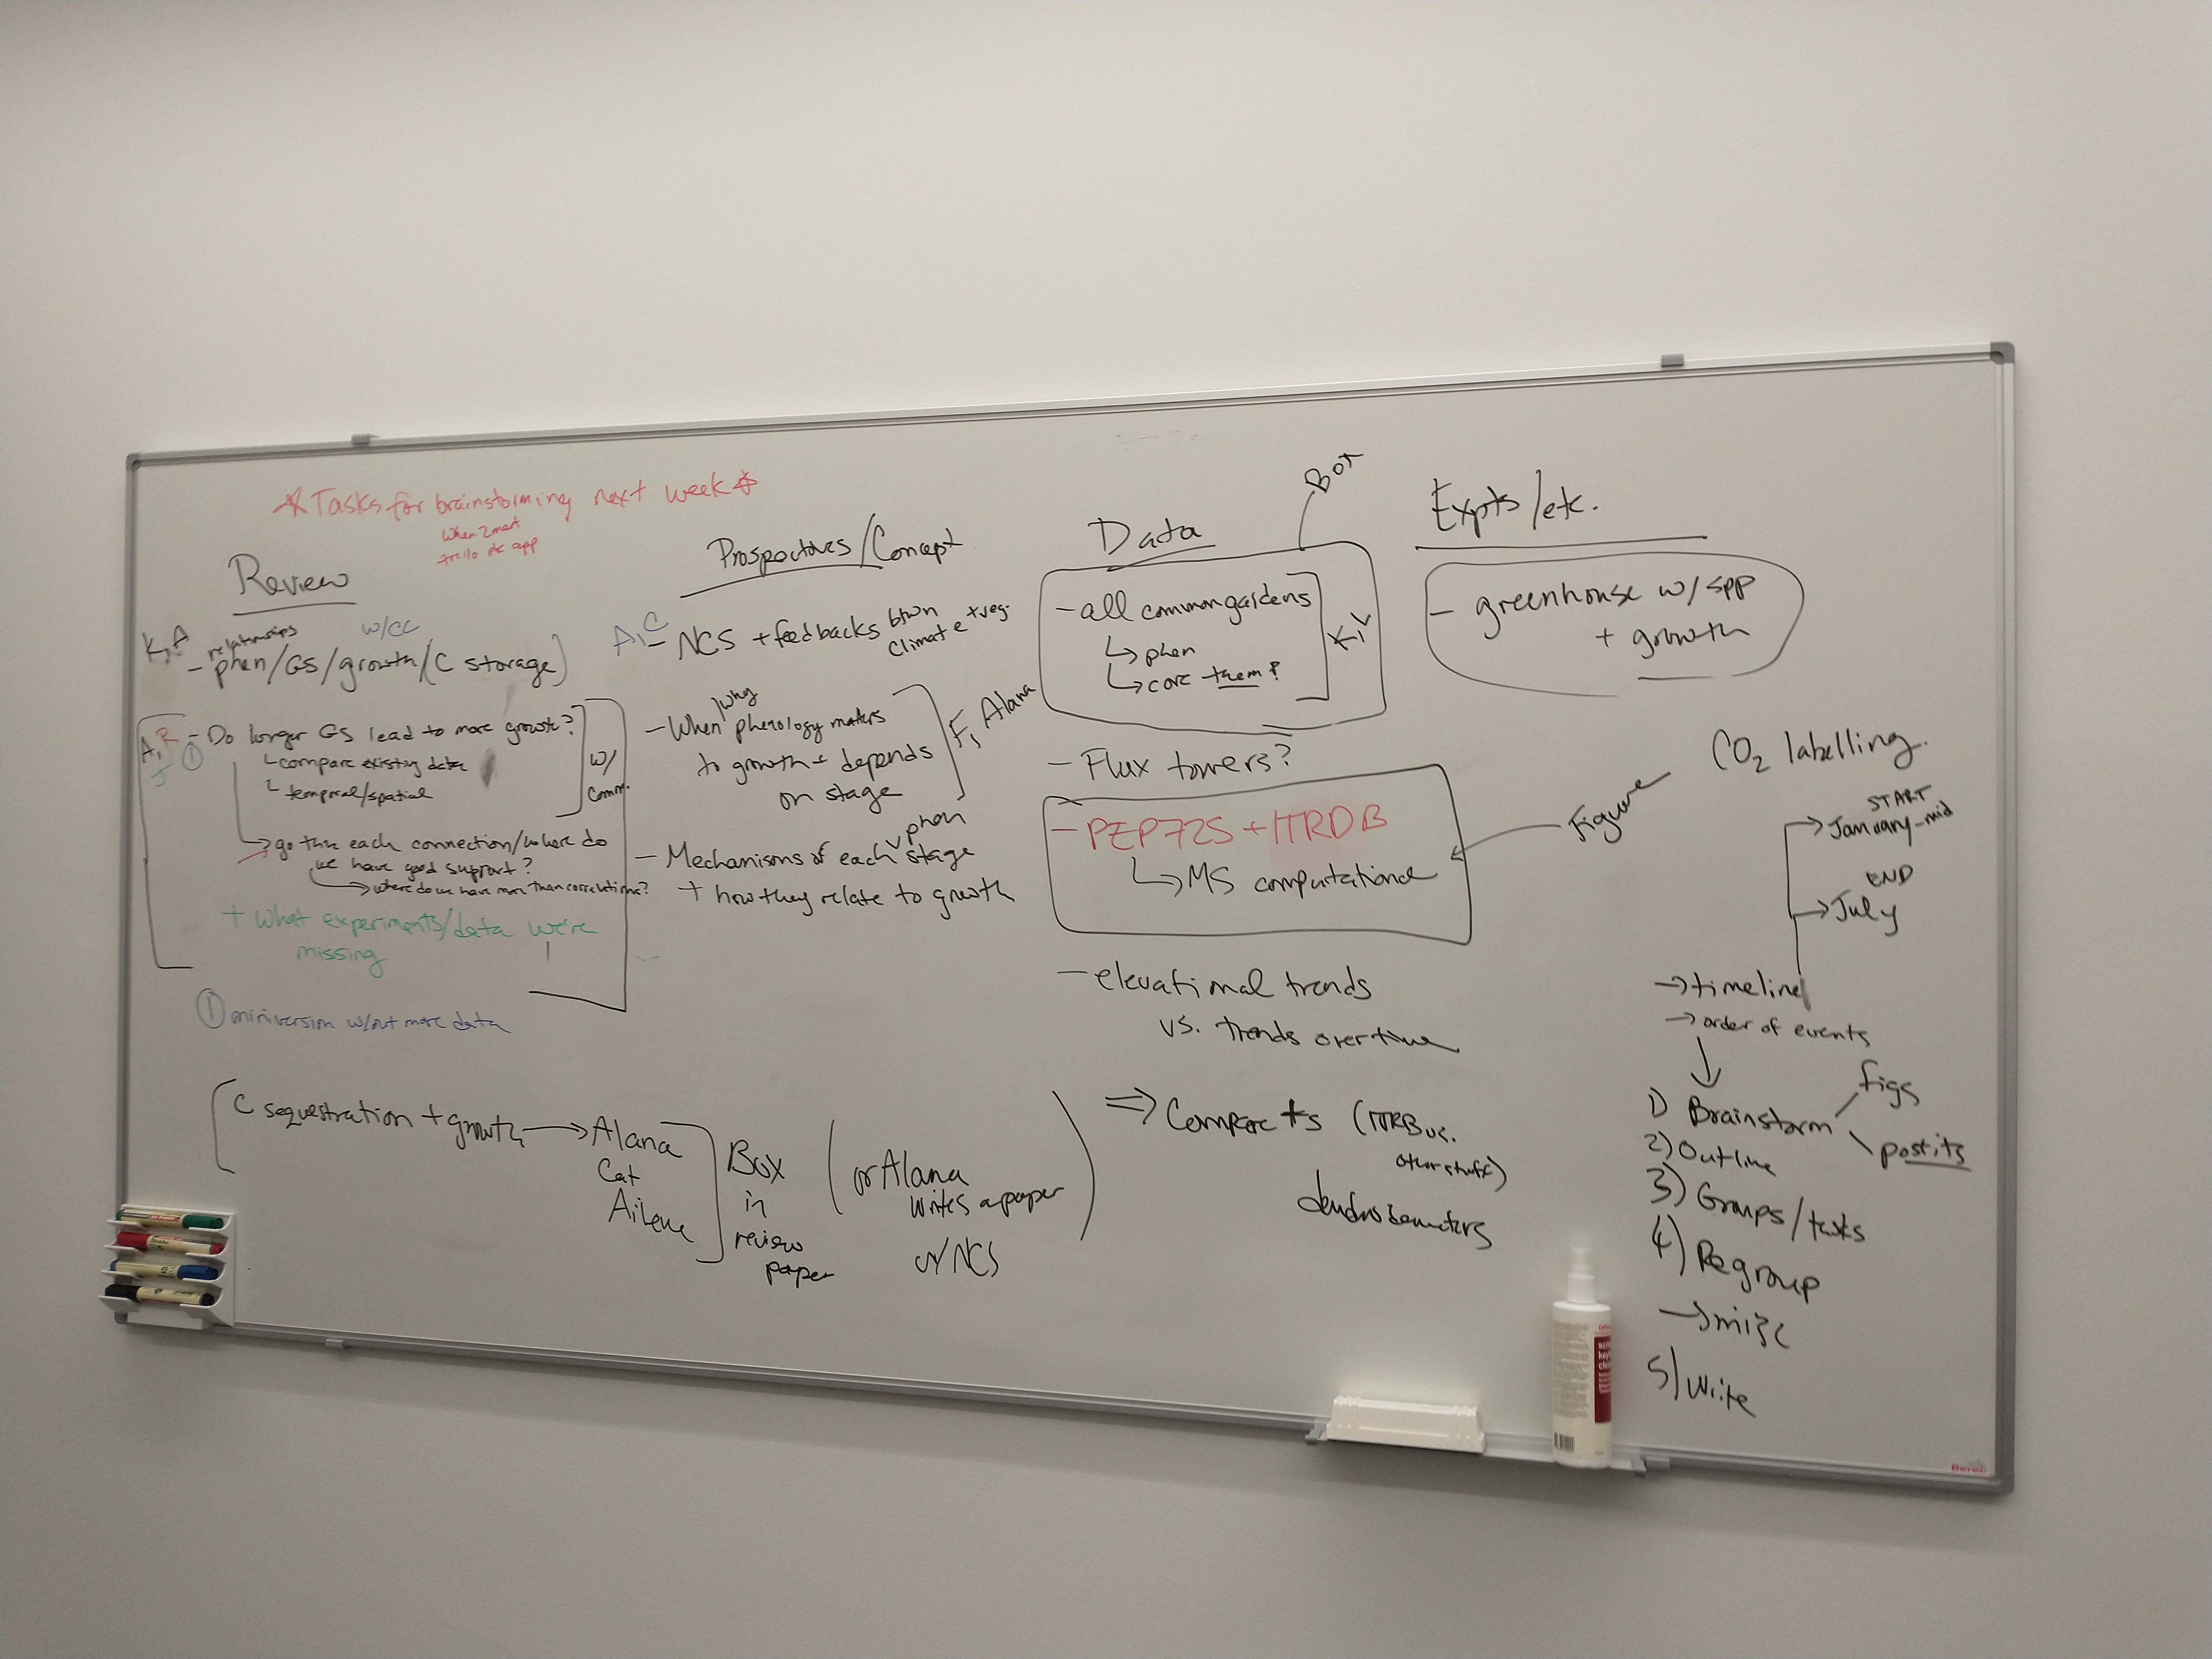 * Tasks for brainstorming next week *
When2meet
trello etc app
Review
K, A
relationships
w/CC
- phen/GS/growth/(C storage)
A, R
J
① - Do longer GS lead to more growth?
compare existing data
temporal/spatial
w/
comm.
→ go thru each connection/where do
we have good support?
→ where do we have more than correlations?
+ What experiments/data we're
missing
① miniversion w/out more data
Prospectives/Concept
A, C
- NCS + feedbacks btwn
climate + veg.
- When/why phenology matters
to growth + depends
on stage
F, Alana
- Mechanisms of each phen stage
+ how they relate to growth
Data
Box
- all common gardens
↳ phen
↳ core them?
K, L
- Flux towers?
- PEP725 + ITRDB
↳ MS computational
Figure
- elevational trends
vs. trends over time
Expts/etc.
- greenhouse w/ spp
+ growth
CO2 labelling.
START
→ January-mid
END
→ July
→ timeline
→ order of events
1) Brainstorm
figs
postits
2) Outline
3) Groups/tasks
4) Regroup
→ misc
5) Write
C sequestration + growth → Alana
Cat
Ailene
Box
in
review
paper
(or Alana
writes a paper
w/ NCS
⇒ Compare
other stuff)
dendrobometers